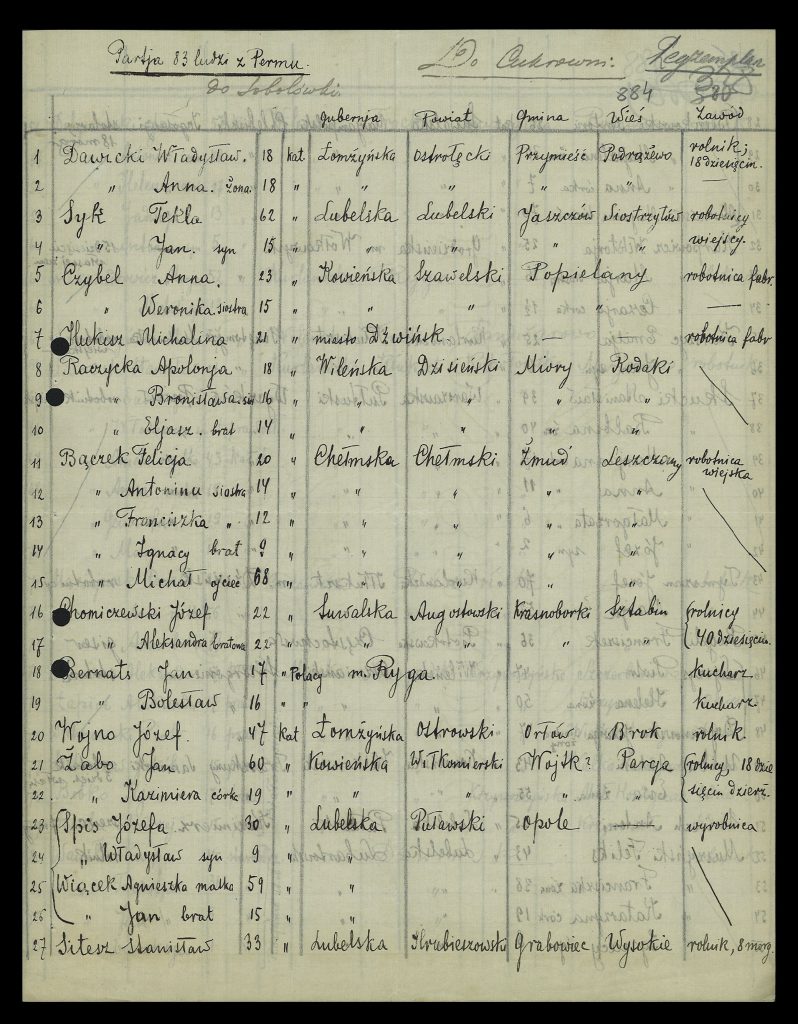 Partja 83 ludzi z Permu. Do Cukrowni:
do Sobolówki
384 380
Gubernja Powiat Gmina Wieś Zawód
1 Dawicki Władysław. 18 kat Łomżyńska Ostrołęcki Przymieść Podrążewo rolnik; 18 dziesięcin.
2 " Anna. żona. 18 " " " " " —
3 Syk Tekla 62 " Lubelska Lubelski Jaszczów Siostrzytów robotnicy
4 " Jan. syn 15 " " " " " wiejscy.
5 Czybel Anna. 23 " Kowieńska Szawelski Popielany robotnica fabr.
6 " Weronika siostra 15 " " " " —
7 Hukisz Michalina 21 " miasto Dźwińsk. — — robotnica fabr
8 Raczycka Apolonja 18 " Wileńska Dzisieński Miory Rodaki
9 " Bronisława. sio 16 " " " " "
10 " Eljasz. brat 14 " " " " "
11 Bączek Felicja 20 " Chełmska Chełmski Żmudź Leszczany robotnica wiejska
12 " Antonina siostra 14 " " " " "
13 " Franciszka " 12 " " " " "
14 " Ignacy brat 9 " " " " "
15 " Michał ojciec 68 " " " " "
16 Chomiczewski Józef 22 " Suwalska Augostowski Krasnoborki Sztabin rolnicy
17 " Aleksandra bratowa 22 " " " " " 40 dziesięcin.
18 Bernats Jan 17 " Polacy m. Ryga. kucharz
19 " Bolesław 16 " " kucharz
20 Wojno Józef. 47 kat Łomżyńska Ostrowski Orłów Brok rolnik.
21 Żabo Jan 60 " Kowieńska Wiłkomierski Wojtk? Parcja rolnicy, 18 dzie
22. " Kazimiera córka 19 " " " " " sięcin dzierż.
23 Spis Józefa 30 " Lubelska Puławski Opole — wyrobnica
24 " Władysław syn 9 " "
25 Wiącek Agnieszka matka 59 " "
26 " Jan brat 15 " "
27 Sitesz Stanisław 33 " Lubelska Hrubieszowski Grabowiec Wysokie rolnik, 8 morg.